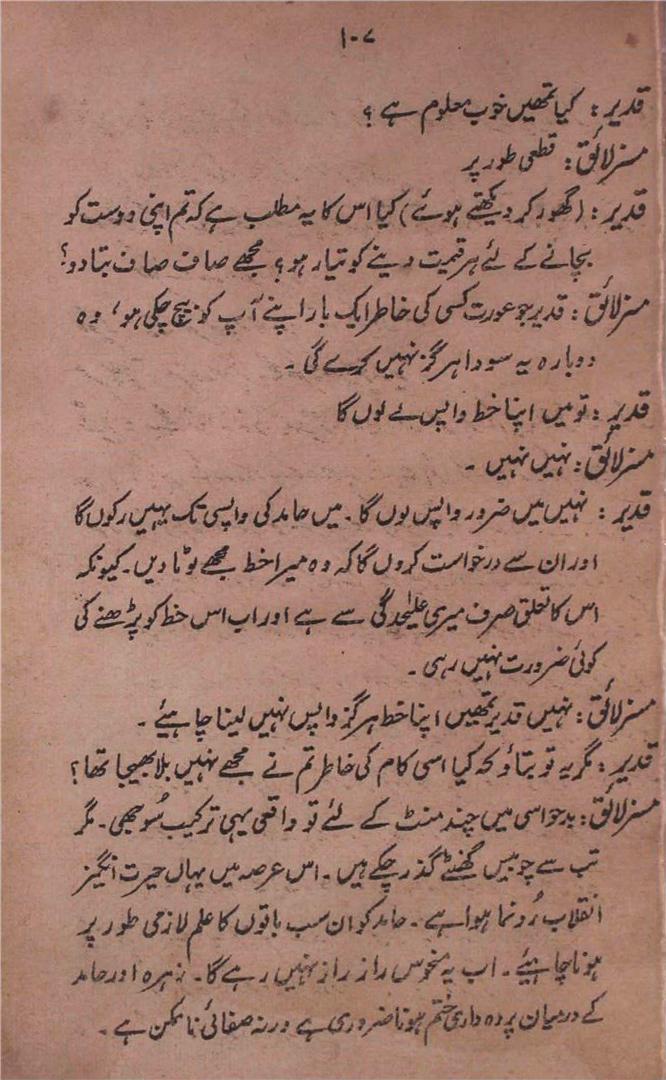 ۱۰۷
قدیر : کیا تمھیں خوب معلوم ہے ؟
مسز لائق : قطعی طور پر
قدیر : (گھور کر دیکھتے ہوئے) کیا اس کا یہ مطلب ہے کہ تم اپنی دوست کو
بچانے کے لئے ہر قیمت دینے کو تیار ہو؟ مجھے صاف صاف بتا دو؟
مسز لائق : قدیر جو عورت کسی کی خاطر ایک بار اپنے آپ کو بیچ چکی ہو، وہ
دوبارہ یہ سودا ہرگز نہیں کرے گی ۔
قدیر : تو میں اپنا خط واپس لے لوں گا
مسز لائق : نہیں نہیں ۔
قدیر : نہیں میں ضرور واپس لوں گا ۔ میں حامد کی واپسی تک یہیں رکوں گا
اور ان سے درخواست کروں گا کہ وہ میرا خط مجھے لوٹا دیں ۔ کیونکہ
اس کا تعلق صرف میری علیٰحدگی سے ہے اور اب اس خط کو پڑھنے کی
کوئی ضرورت نہیں رہی ۔
مسز لائق : نہیں قدیر تمھیں اپنا خط ہرگز واپس نہیں لینا چاہئیے ۔
قدیر : مگر یہ تو بتاؤ کہ کیا اسی کام کی خاطر تم نے مجھے نہیں بلا بھیجا تھا؟
مسز لائق : بدحواسی میں چند منٹ کے لئے تو واقعی یہی ترکیب سُوجھی ۔ مگر
تب سے چوبیس گھنٹے گذر چکے ہیں ۔ اس عرصہ میں یہاں حیرت انگیز
انقلاب رُونما ہوا ہے ۔ حامد کو ان سب باتوں کا علم لازمی طور پر
ہونا چاہیئے ۔ اب یہ منحوس راز راز نہیں رہے گا ۔ زہرہ اور حامد
کے درمیان پردہ داری ختم ہونا ضروری ہے ورنہ صفائی ناممکن ہے ۔